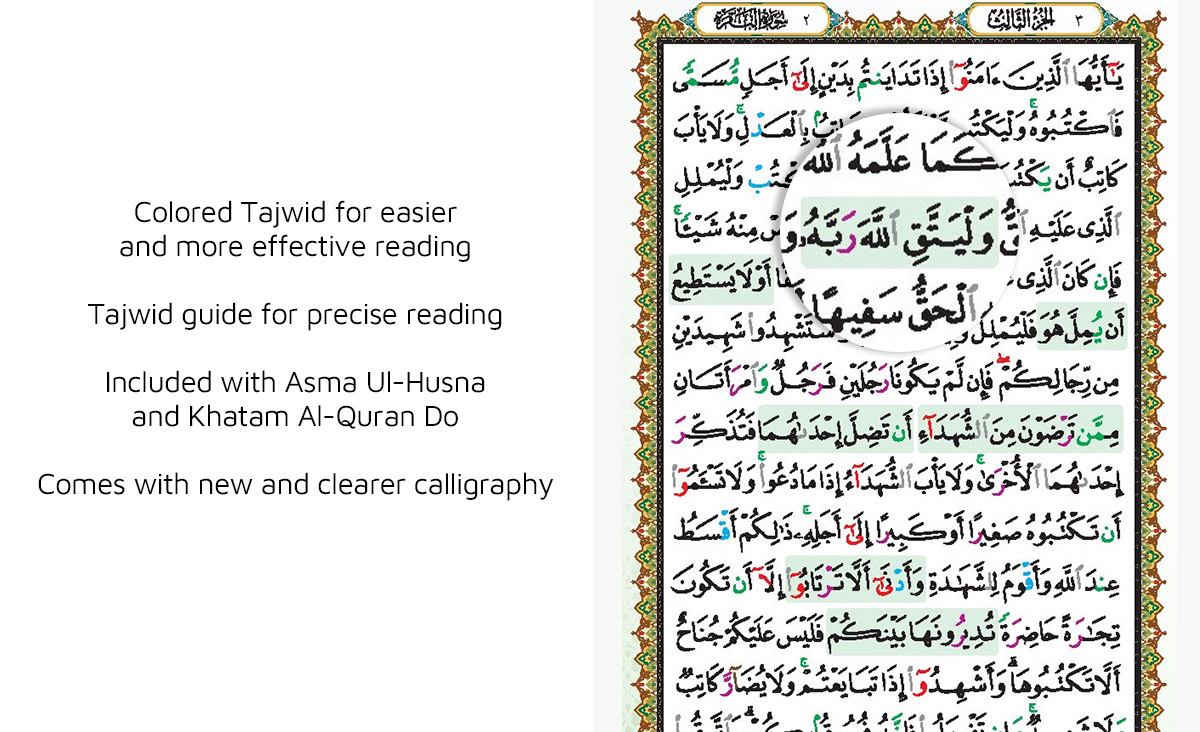 Colored Tajwid for easier
and more effective reading
Tajwid guide for precise reading
Included with Asma Ul-Husna
and Khatam Al-Quran Do
Comes with new and clearer calligraphy
٣ الجزء الثالث ٢ سورة البقرة
يَٰٓأَيُّهَا ٱلَّذِينَ ءَامَنُوٓا۟ إِذَا تَدَايَنتُم بِدَيْنٍ إِلَىٰٓ أَجَلٍ مُّسَمًّى
فَٱكْتُبُوهُ ۚ بِٱلْعَدْلِ ۚ وَلَا يَأْبَ
كَاتِبٌ أَن وَلْيُمْلِلِ
ٱلَّذِى عَلَيْهِ مِنْهُ شَيْـًٔا ۚ
فَإِن كَانَ ٱلَّذِى أَوْ لَا يَسْتَطِيعُ
أَن يُمِلَّ هُوَ فَلْيُمْلِلْ شَهِيدَيْنِ
كَمَا عَلَّمَهُ ٱللَّهُ
وَلْيَتَّقِ ٱللَّهَ رَبَّهُۥ
ٱلْحَقُّ سَفِيهًا
مِن رِّجَالِكُمْ ۖ فَإِن لَّمْ يَكُونَا رَجُلَيْنِ فَرَجُلٌ وَٱمْرَأَتَانِ
مِمَّن تَرْضَوْنَ مِنَ ٱلشُّهَدَآءِ أَن تَضِلَّ إِحْدَىٰهُمَا فَتُذَكِّرَ
إِحْدَىٰهُمَا ٱلْأُخْرَىٰ ۚ وَلَا يَأْبَ ٱلشُّهَدَآءُ إِذَا مَا دُعُوا۟ ۚ وَلَا تَسْـَٔمُوٓا۟
أَن تَكْتُبُوهُ صَغِيرًا أَوْ كَبِيرًا إِلَىٰٓ أَجَلِهِۦ ۚ ذَٰلِكُمْ أَقْسَطُ
عِندَ ٱللَّهِ وَأَقْوَمُ لِلشَّهَٰدَةِ وَأَدْنَىٰٓ أَلَّا تَرْتَابُوٓا۟ إِلَّآ أَن تَكُونَ
تِجَٰرَةً حَاضِرَةً تُدِيرُونَهَا بَيْنَكُمْ فَلَيْسَ عَلَيْكُمْ جُنَاحٌ
أَلَّا تَكْتُبُوهَا ۗ وَأَشْهِدُوٓا۟ إِذَا تَبَايَعْتُمْ ۚ وَلَا يُضَآرَّ كَاتِبٌ